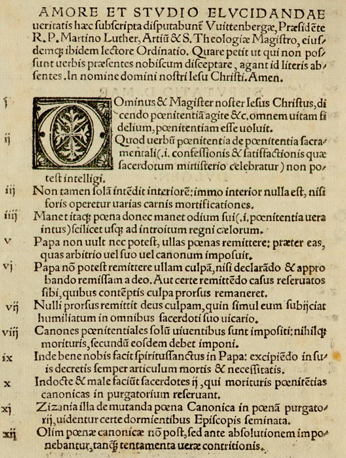 AMORE ET STVDIO ELVCIDANDAE
ueritatis hæc subscripta disputabunť Vuittenbergæ, Præsidéte
R. P. Martino Luther, Artiũ & S. Theologiæ Magistro, eius-
demq; ibidem lectore Ordinatio. Quare petit ut qui non pos-
sunt uerbis præsentes nobiscum disceptare, agant id literis ab-
sentes. In nomine domini nostri Iesu Christi. Amen.
i Ominus & Magister noster Iesus Christus, di-
cendo pœnitentiã agite &c, omnem uitam fi
delium, pœnitentiam esse uoluit.
ij Quod uerbũ pœnitentia de pœnitentia sacra-
mentali(.i. confessionis & satisfactionis quæ
sacerdotum ministerio celebratur) non po-
test intelligi.
iij Non tamen solã intēdit interiorē: immo interior nulla est, nisi
foris operetur uarias carnis mortificationes.
iiij Manet itaq; pœna donec manet odium sui(.i. pœnitentia uera
intus) scilicet usq; ad introitum regni cælorum.
v Papa non uult nec potest, ullas pœnas remittere; præter eas,
quas arbitrio uel suo uel canonum imposuit.
vj Papa nõ potest remittere ullam culpã, nisi declarãdo & appro
bando remissam a deo, Aut certe remittēdo casus reseruatos
sibi, quibus contēptis culpa prorsus remaneret.
vij Nulli prorsus remittit deus culpam, quin simul eum subijciat
humiliatum in omnibus sacerdoti suo uicario.
viij Canones pœnitentiales solũ uiuentibus sunt impositi; nihilq;
morituris, secundũ eosdem debet imponi.
ix Inde bene nobis facit spiritussanctus in Papa: excipiēdo in su-
is decretis semper articulum mortis & necessitatis.
x Indocte & male faciũt sacerdotes ij, qui morituris pœnitētias
canonicas in purgatorium reseruant.
xj Zizania illa de mutanda pœna Canonica in pœnã purgato-
rij, uidentur certe dormientibus Episcopis seminata.
xij Olim pœnæ canonicæ nõ post, sed ante absolutionem impo-
nebantur, tanq̃ tentamenta ueræ contritionis.